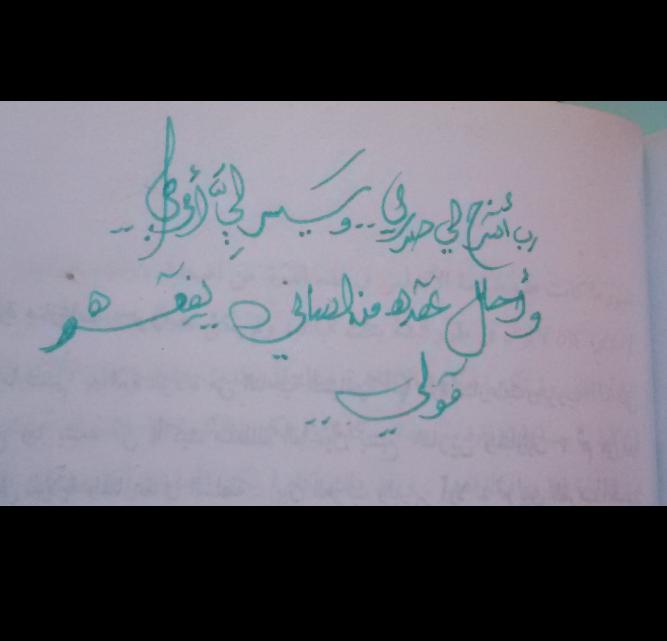 رب أشرح لي صدري.. ويسر لِيَّ أمري..
وأحلل عقده من لساني يفقهو
قولي..